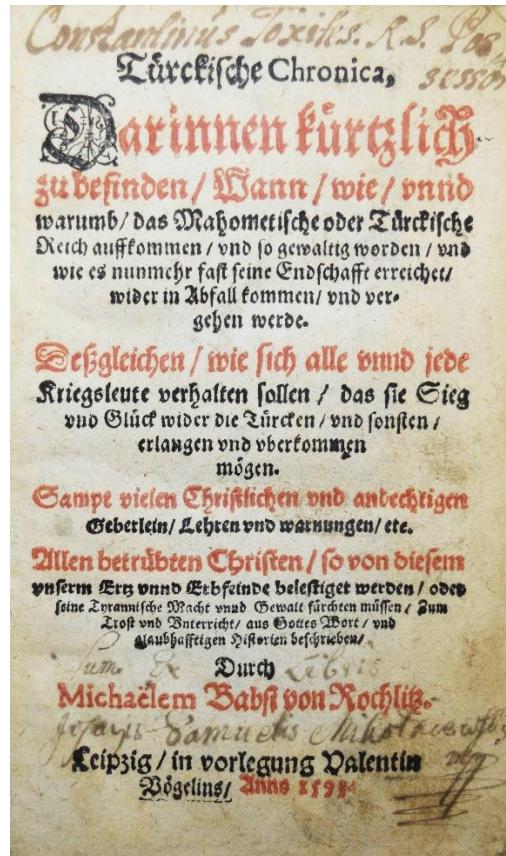 Constantinus Toxites. A. S. Pos
sessor
Türckische Chronica,
Darinnen kürtzlich
zu befinden / Wann / wie / vnnd
warumb / das Mahometische oder Türckische
Reich auffkommen / vnd so gewaltig worden / vnd
wie es nunmehr fast seine Endschafft erreichet /
wider in Abfall kommen / vnd ver-
gehen werde.
Deßgleichen / wie sich alle vnnd jede
Kriegsleute verhalten sollen / das sie Sieg
vnd Glück wider die Türcken / vnd sonsten /
erlangen vnd vberkommen
mögen.
Sampt vielen Christlichen vnd andechtigen
Gebetlein / Lehren vnd warnungen / etc.
Allen betrübten Christen / so von diesem
vnserm Ertz vnnd Erbfeinde belestiget werden / oder
seine Tyrannische Macht vnnd Gewalt fürchten müssen / Zum
Trost vnd Vnterricht / aus Gottes Wort / vnd
glaubhafftigen Historien beschrieben /
Sum Ex Libris
Durch
Michaëlem Babst von Rochlitz.
Samuelis
Leipzig / in vorlegung Valentin
Vögelins / Anno